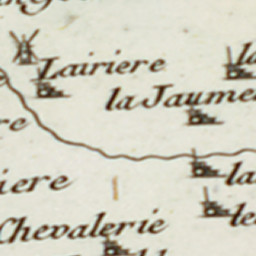 Lairiere
la
la Jaume
re
iere
la
Chevalerie
le